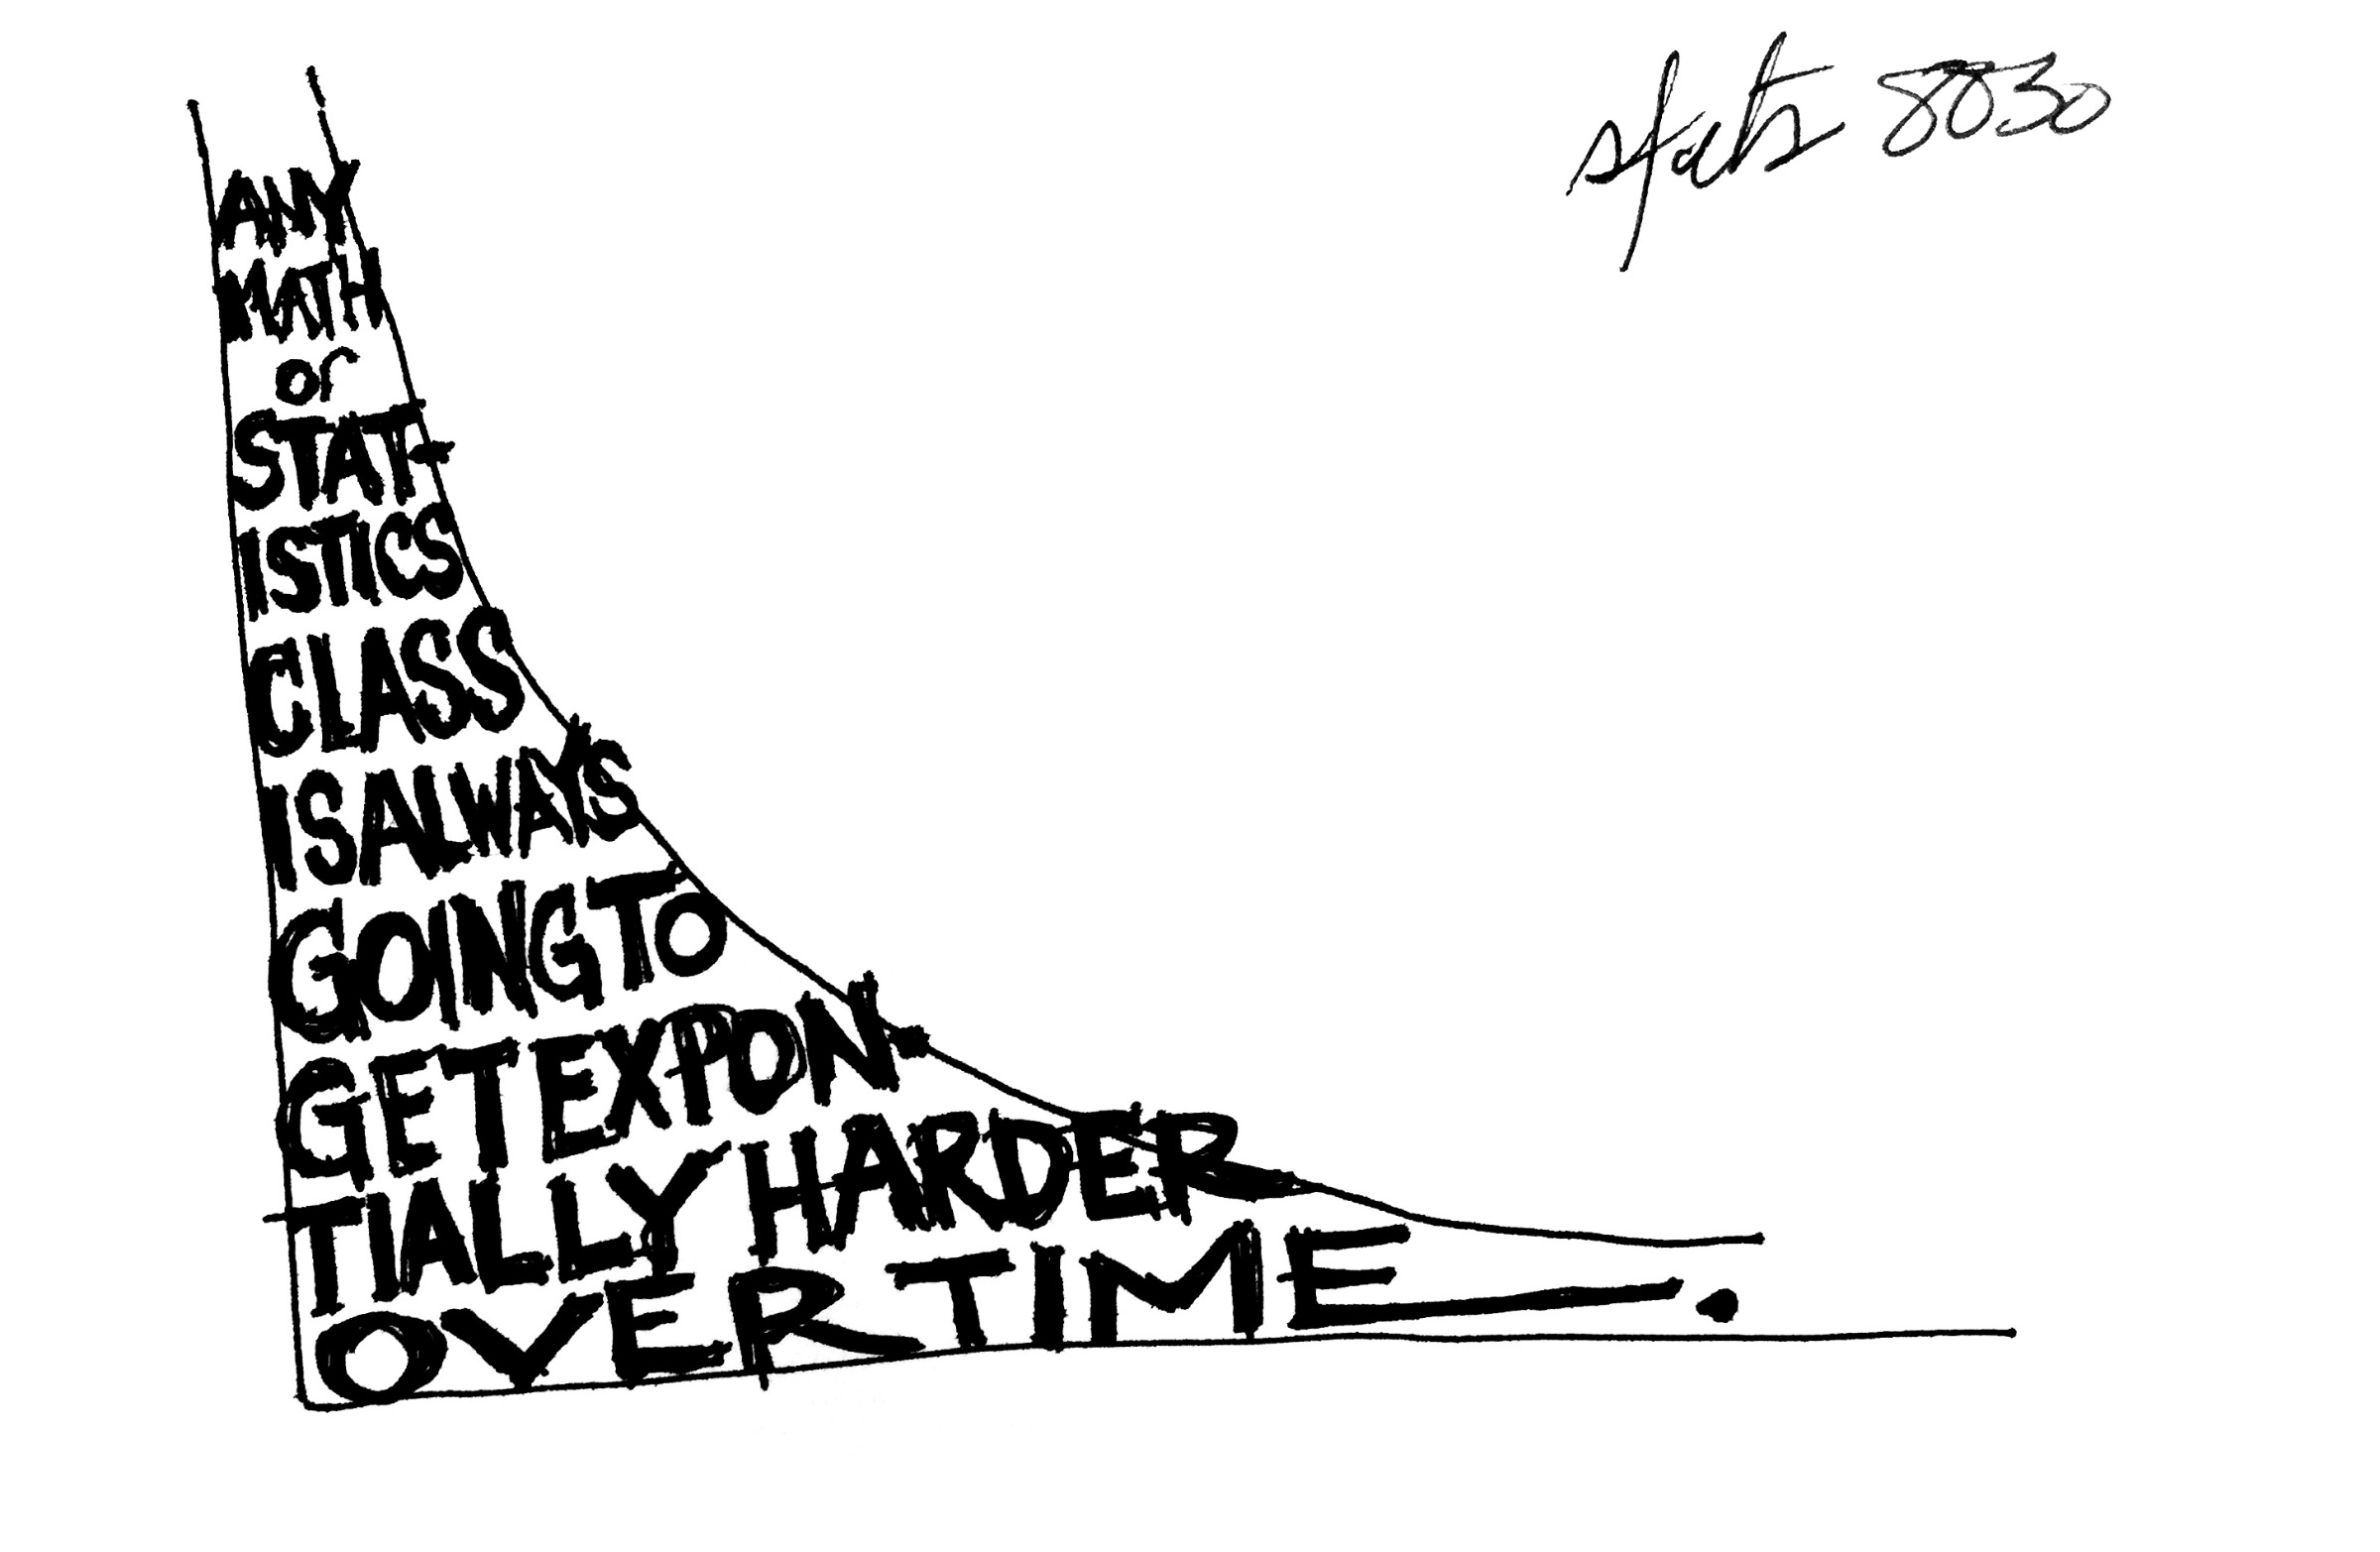 stats 8030
ANY
MATH
or
STAT-
ISTICS
CLASS
IS ALWAYS
GOING TO
GET EXPON-
TIALLY HARDER
OVER TIME.